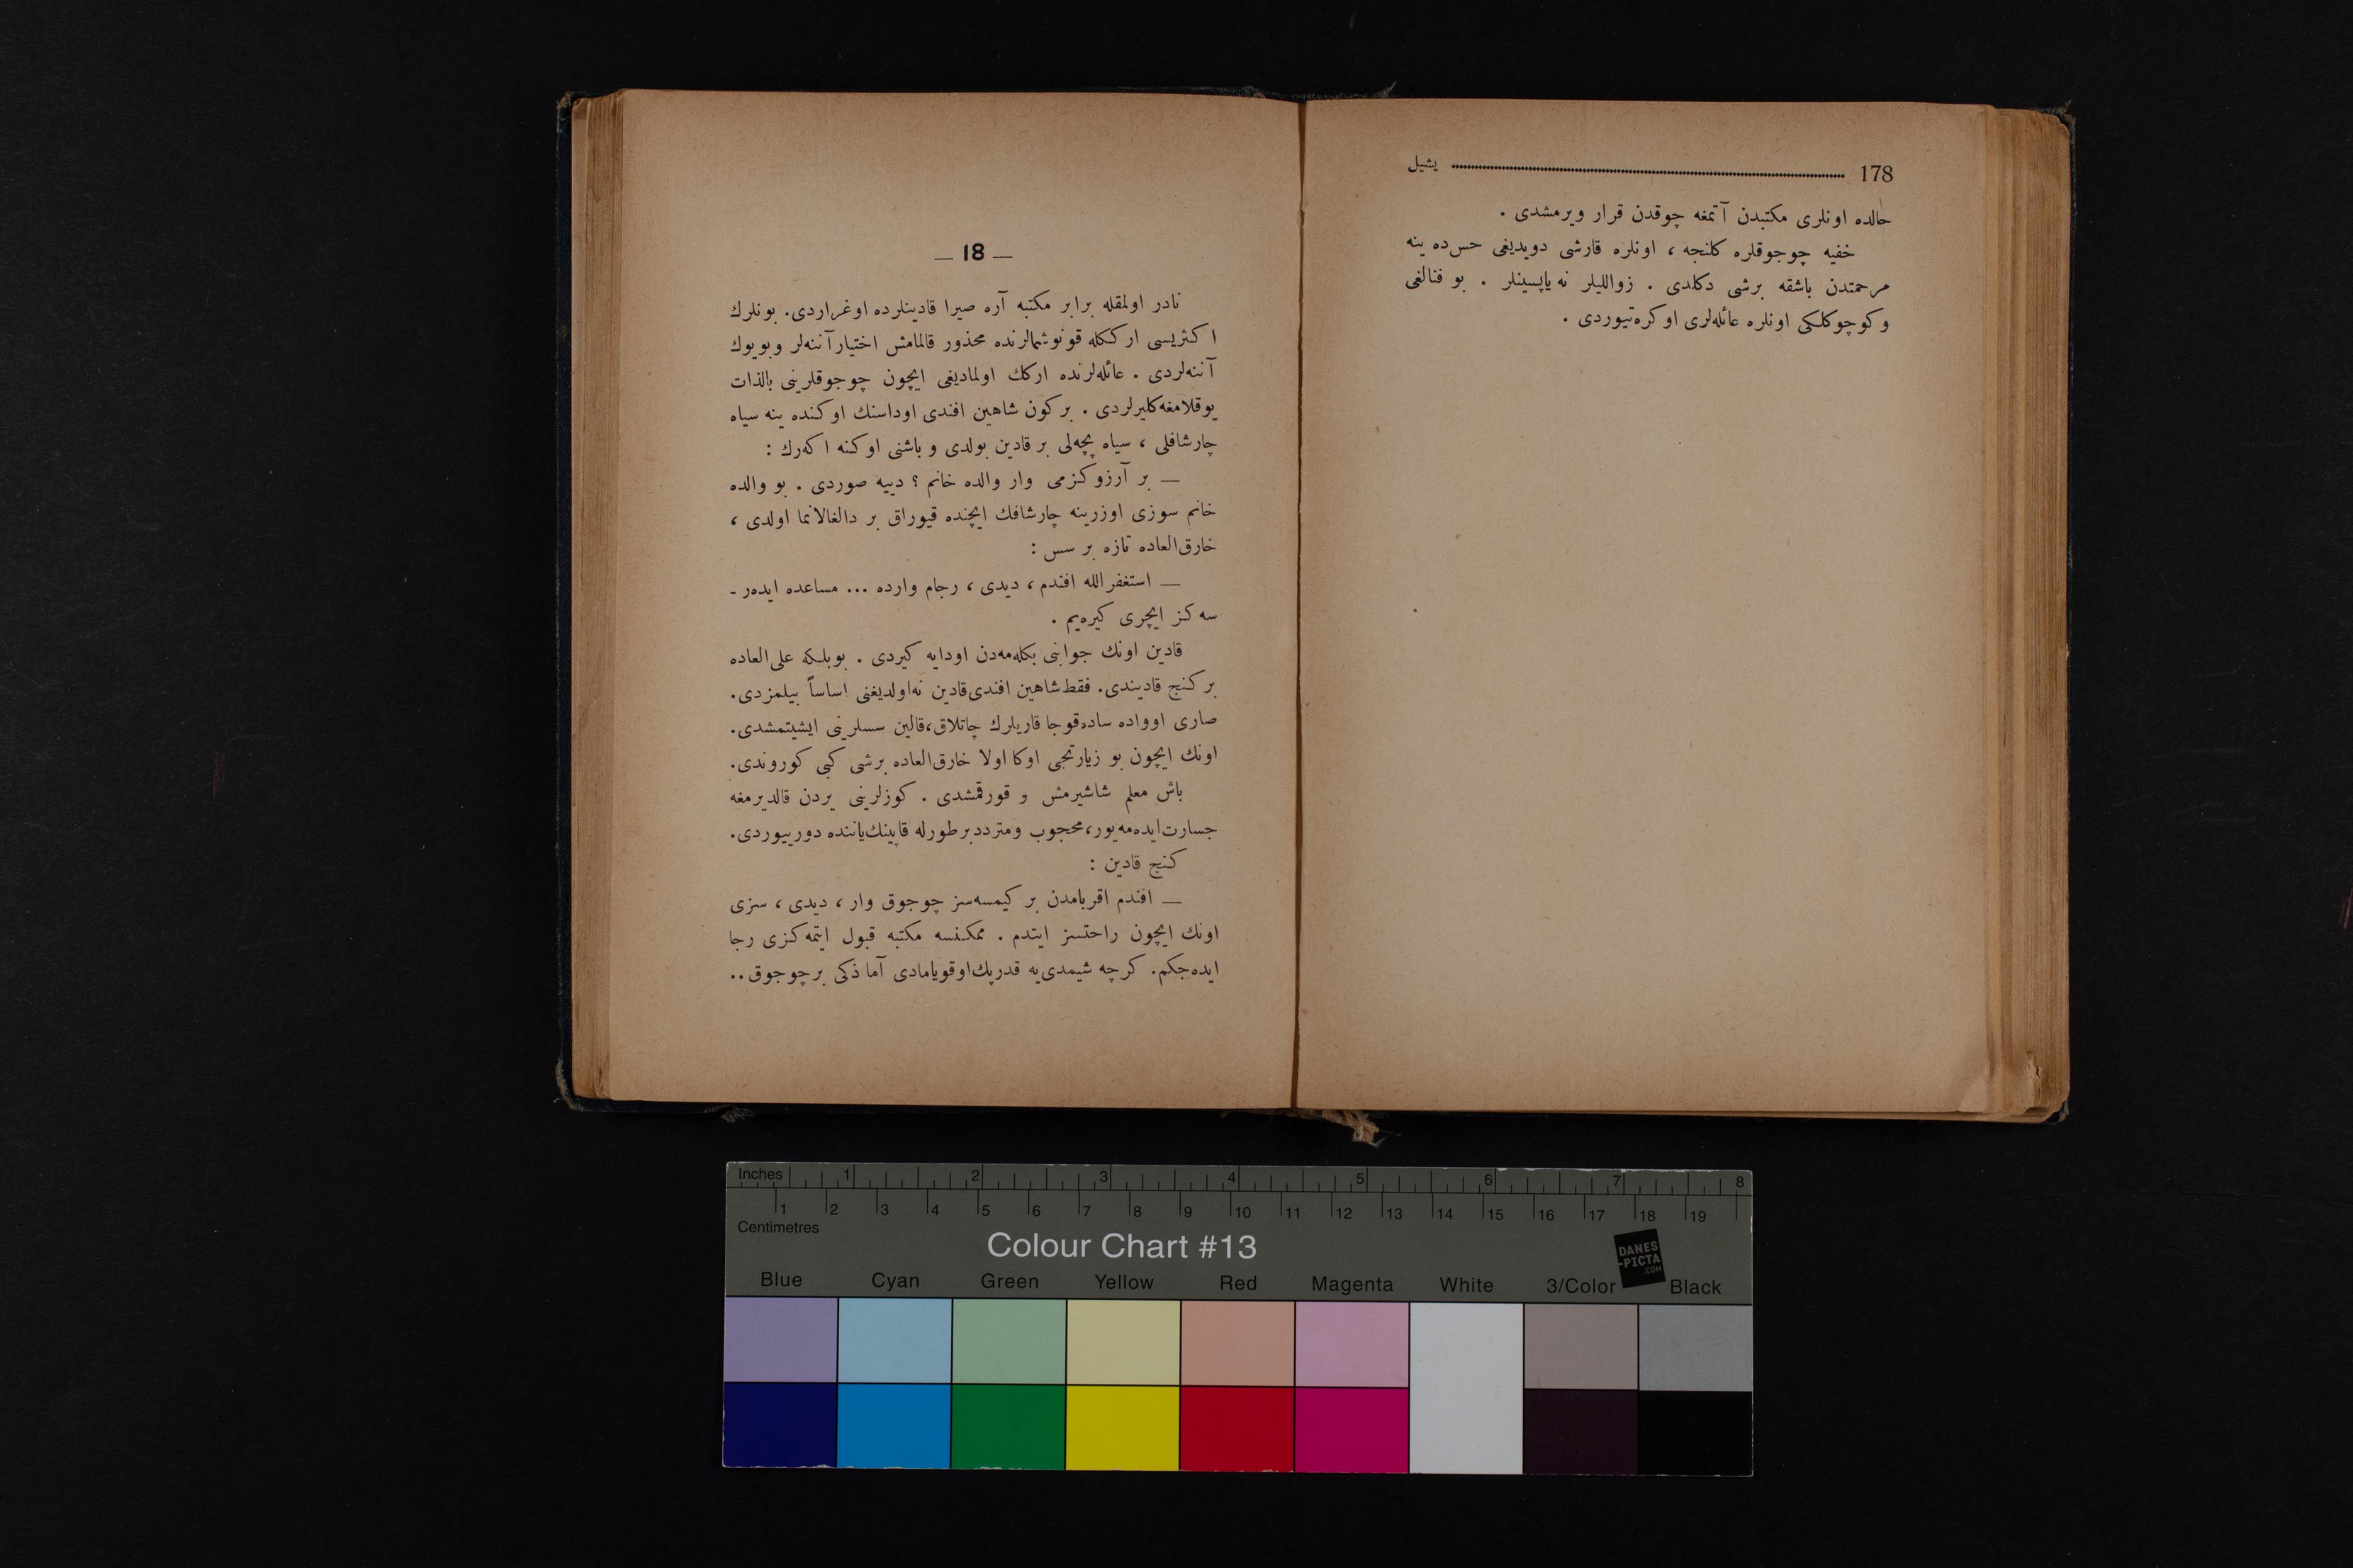 178 يشيل
حالده اونلرى مكتبدن آتمغه چوقدن قرار ويرمشدى .
خفيه چوجوقلره كلنجه ، اونلره قارشى دويديغى حس‌ده ينه
مرحمتدن باشقه برشى دكلدى . زواللیلر نه ياپسينلر . بو فنالغى
وكوچوكلكى اونلره عائله‌لرى اوكره‌تيوردى .
— 18 —
نادر اولمقله برابر مكتبه آره صيرا قادينلرده اوغراردى. بونلرك
اكثريسى ارككله قونوشمالرنده محذور قالمامش اختيار آننه‌لر وبويوك
آننه‌لردى . عائله‌لرنده اركك اولماديغى ايچون چوجوقلرينى بالذات
يوقلامغه كليرلردى . بركون شاهين افندى اوداسنك اوكنده ينه سياه
چارشافلى ، سياه پچه‌لى بر قادين بولدى و باشنى اوكنه اكه‌رك :
— بر آرزوكزمى وار والده خانم ؟ دييه صوردى . بو والده
خانم سوزى اوزرينه چارشافك ايچنده قيوراق بر دالغالانما اولدى ،
خارق‌العاده تازه بر سس :
— استغفرالله افندم ، ديدى ، رجام وارده ... مساعده ايده‌ر -
سه كز ايچرى كيره‌يم .
قادين اونك جوابنى بكله‌مه‌دن اودايه كيردى . بوبلكه على‌العاده
بر كنج قادیندى. فقط شاهين افندى قادين نه اولديغنى اساساً بيلمزدى.
صارى اوواده ساده قوجا قاريلرك چاتلاق، قالين سسلرينى ايشيتمشدى.
اونك ايچون بو زيارتجى اوكا اولا خارق‌العاده برشى كبى كوروندى.
باش معلم شاشيرمش و قورقمشدى . كوزلرينى يردن قالديرمغه
جسارت ايده‌مه‌يور، محجوب ومتردد برطورله قاپينك ياننده دورييوردى.
كنج قادين :
— افندم اقربامدن بر كيمسه‌سز چوجوق وار ، ديدى ، سزى
اونك ايچون راحتسز ايتدم . ممكنسه مكتبه قبول ايتمه كزى رجا
ايده‌جكم. كرچه شيمدى‌يه قدرپك اوقويامادى آما ذكى بر چوجوق..
Inches 1 2 3 4 5 6 7 8
1 2 3 4 5 6 7 8 9 10 11 12 13 14 15 16 17 18 19
Centimetres
Colour Chart #13
DANES
-PICTA
.COM
Blue Cyan Green Yellow Red Magenta White 3/Color Black